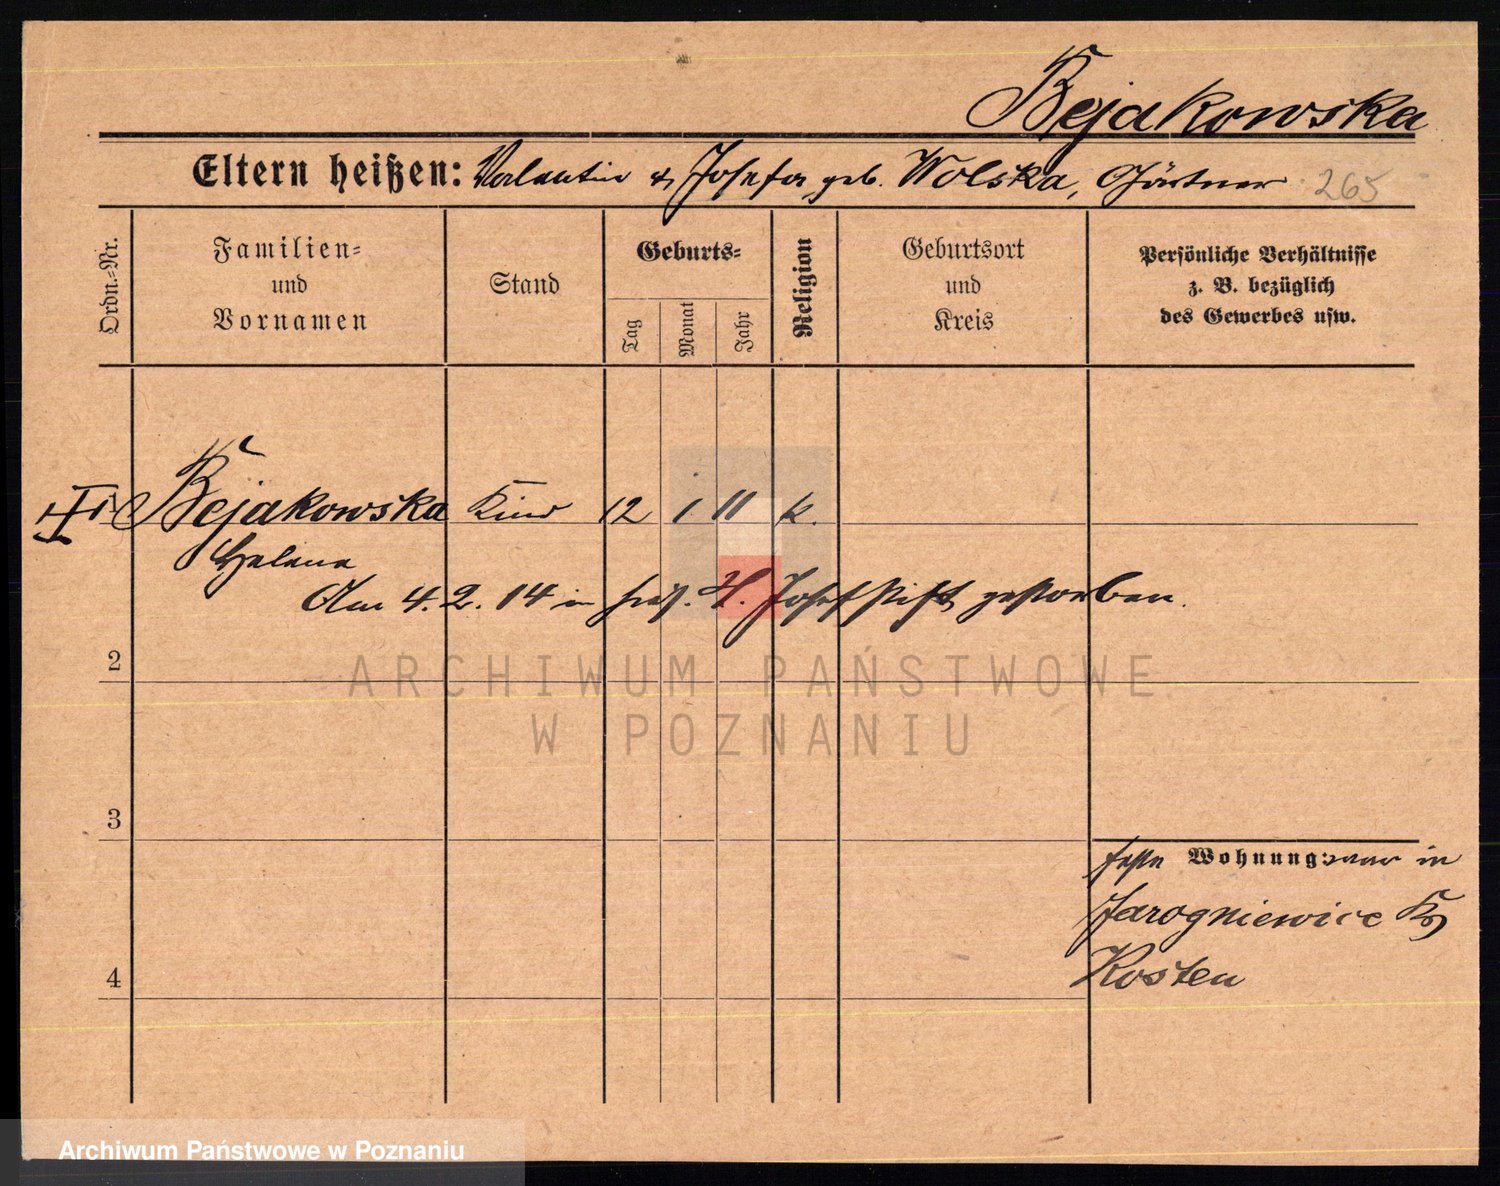 Bejakowska
Eltern heißen: Valentin & Josefa geb. Wolska, Gärtner 265
Ordn.-Nr.
Familien-
und
Vornamen
Stand
Geburts-
Tag
Monat
Jahr
Religion
Geburtsort
und
Kreis
Persönliche Verhältnisse
z. B. bezüglich
des Gewerbes usw.
Bejakowska Kind 12 1 11 k.
Helena
Am 4. 2. 14 in hies. St. Josefstift gestorben.
2
ARCHIWUM PAŃSTWOWE
W POZNANIU
3
feste Wohnung: war in
Jarogniewice Kr
4
Kosten
Archiwum Państwowe w Poznaniu